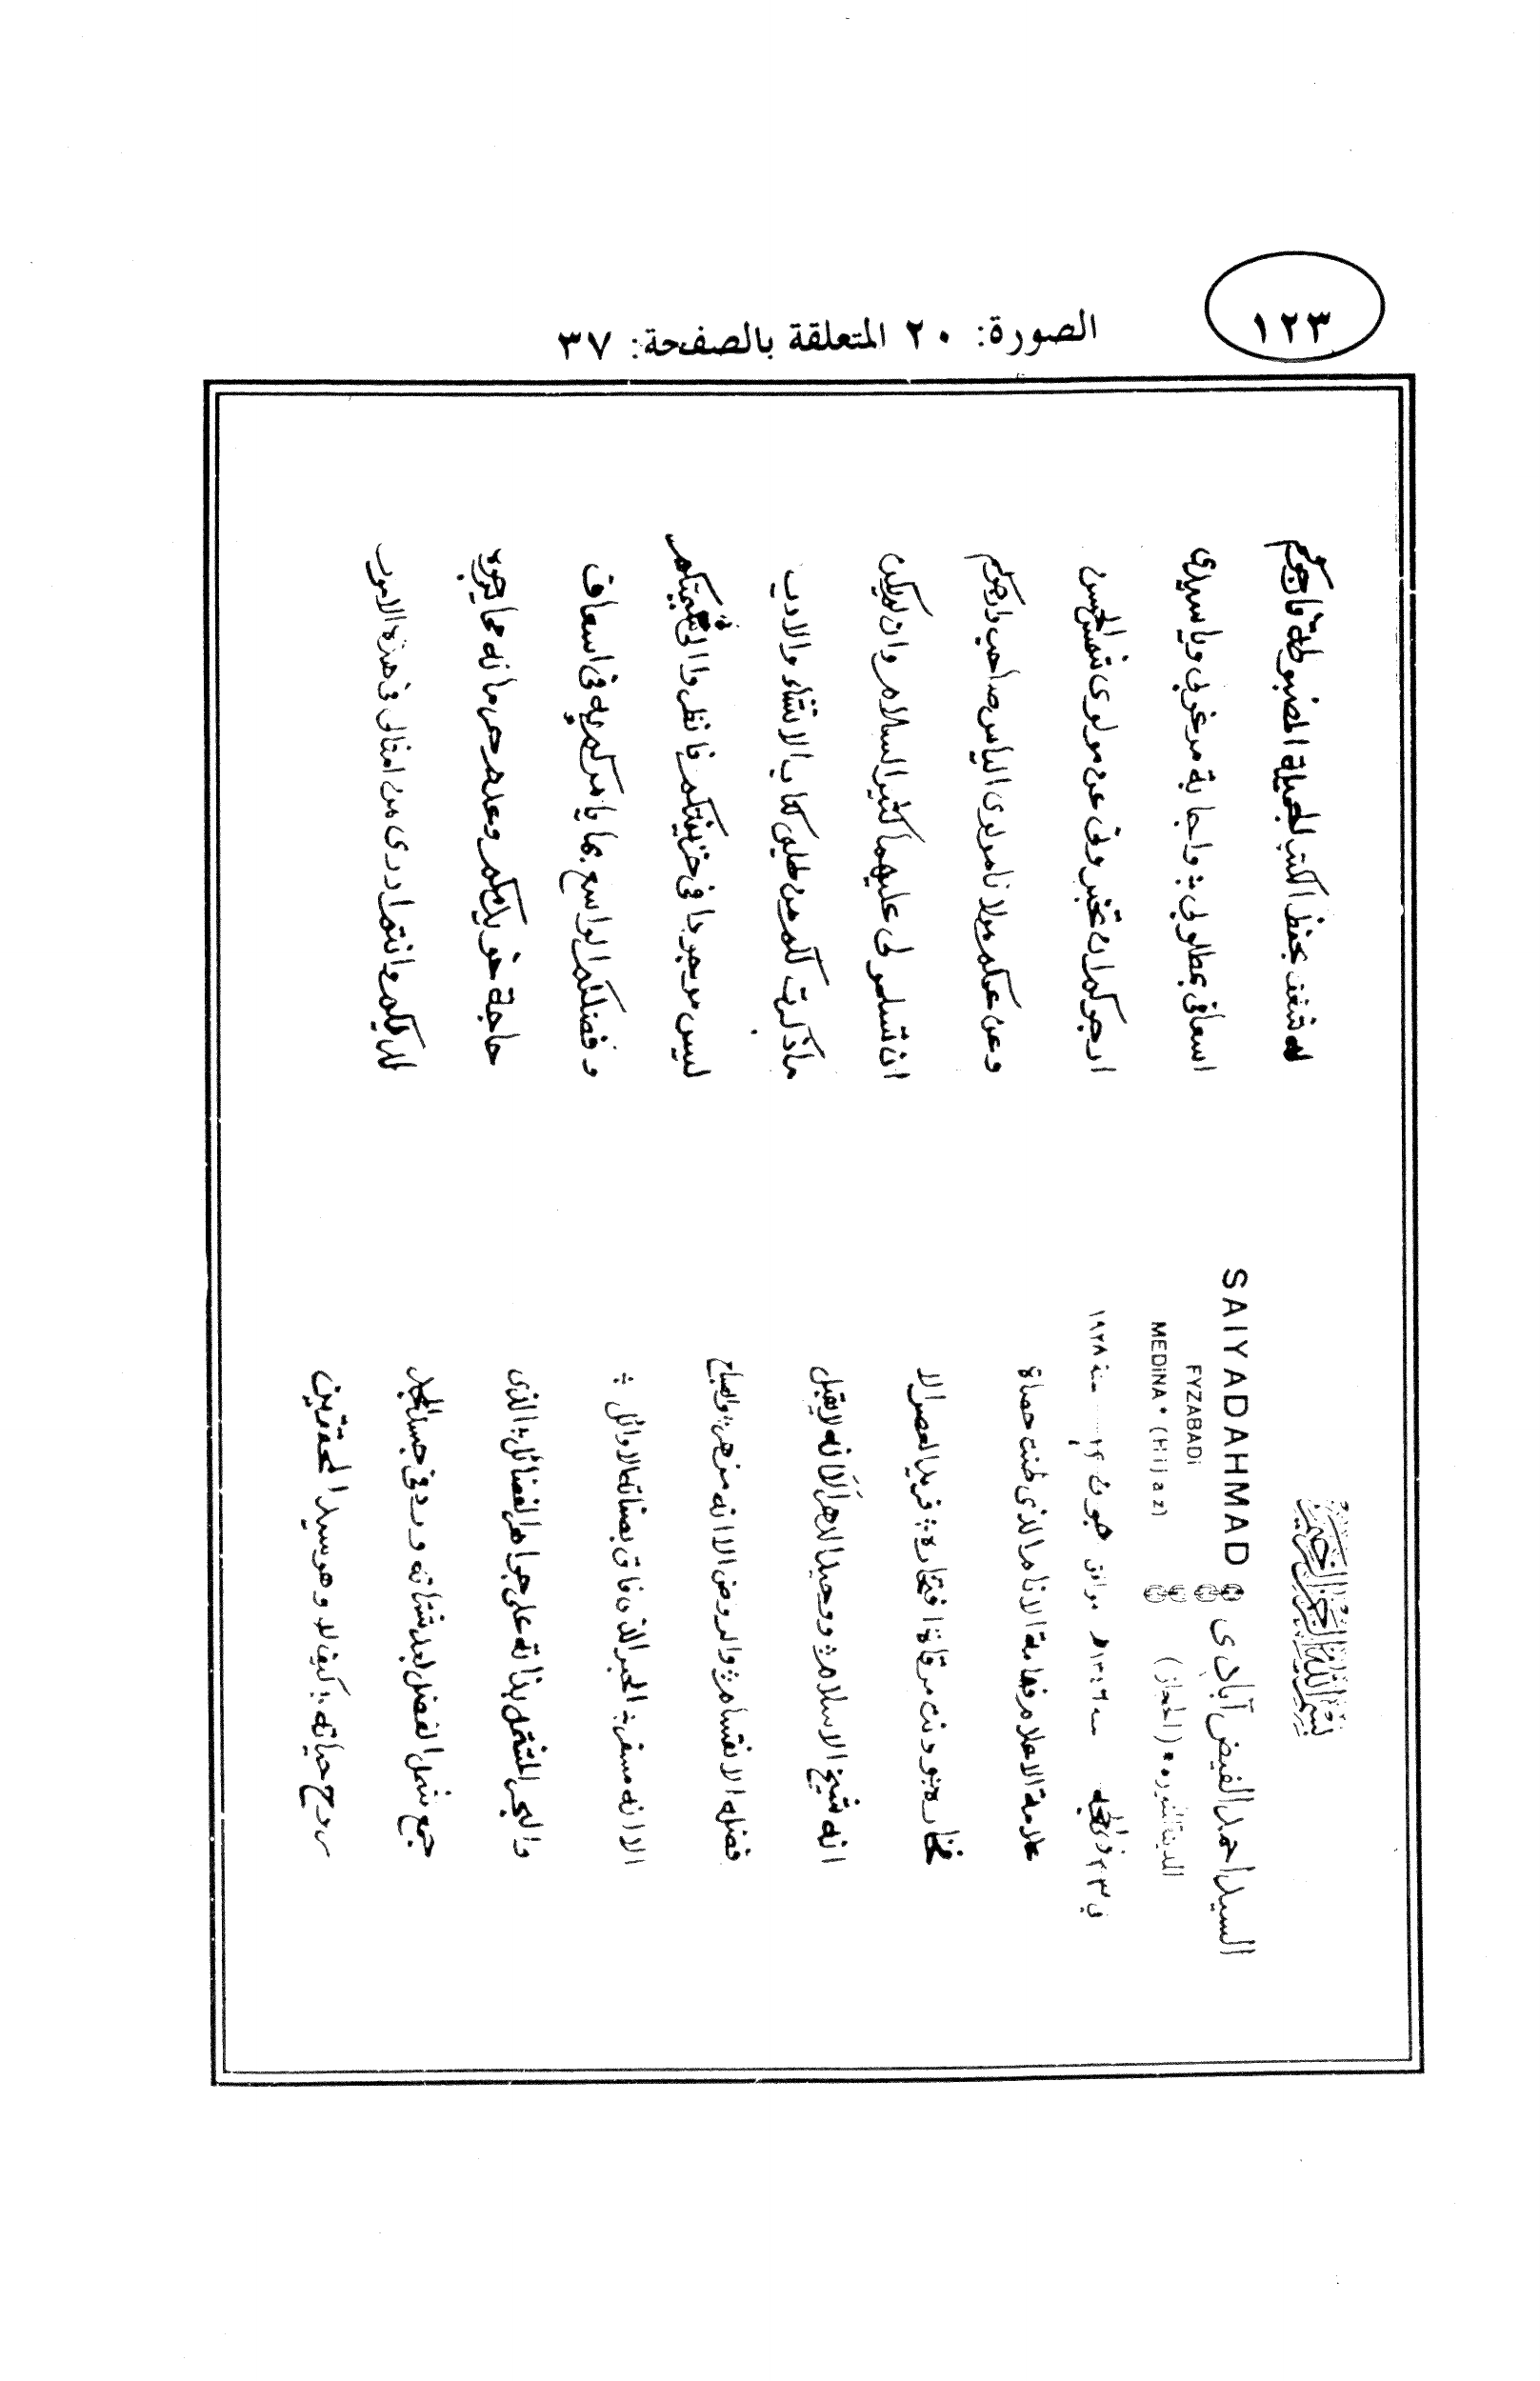 ١٢٣
الصورة: ٢٠ المتعلقة بالصفحة: ٣٧
بسم الله الرحمن الرحيم
السيد احمد الفيض آبادى SAIYADAHMAD
FYZABADi
المدينة المنوره * (الحجاز) MEDiNA * (Hijaz)
في ٢٣ ذي الحجه سنة ١٣٤٦ هـ موافق جون سنة ١٩٢٨
علامة الاعلام فهامة الانام الذى طنت حصاة
فخاره ؛ وبدت مرقاة افتخاره ؛ فريد العصر الا
انه شيخ الاسلام ؛ ووحيد الدهر ألا انه لا يقبل
فضله الانقسام ؛ والروض الا انه مزهر ؛ والصباح
الا انه مسفر ؛ الحبر الذى فاق بصفاته الاوائل ؛
والبحر المشتمل بذاته على جواهر الفضائل ؛ الذى
جمع شمل الفضل بعد شتاته ورد فى جسد المجد
روح حياته ؛ كيف لا وهو سيد المحققين
له شغف بحفظ الكتب الجميلة المضبوطة فارجوكم
اسعافى بمطلوبى ؛ واجابة مرغوبى ويا سيدى
ارجوكم ان تخبرونى عن مولوى شمس الحسن
وعن عمكم مولانا مولوى الياس صاحب وارجوكم
ان تسلمو لى عليهما كثير السلام وان لم يكن
ما ذكرت لكم من طلبى كتاب الانشاء والادب
ليس موجودا فى خزينتكم فانظروا الى شيمتكم
وفضلكم الواسع بما يامركم به فى اسعاف
حاجة خويدمكم وعدم حرمانه مما يرجوه
لديكم وانتم ادرى من امثالى فى هذه الامور